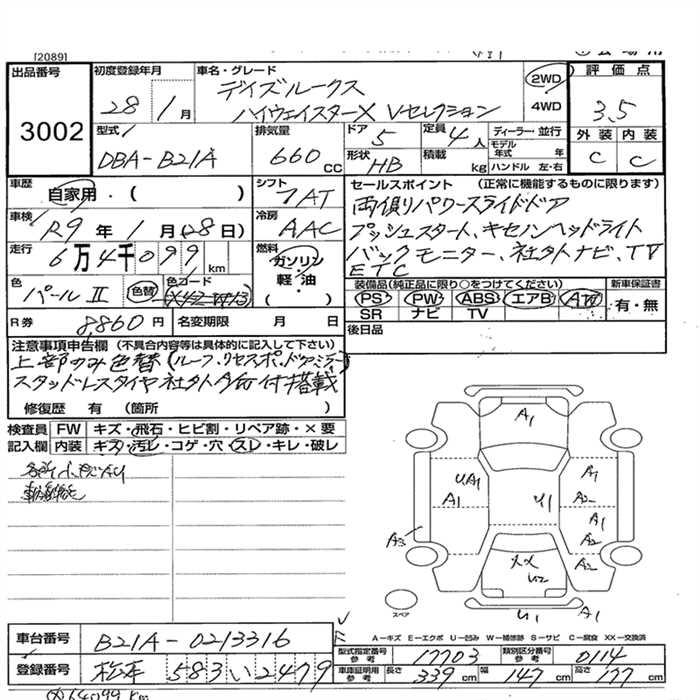 [2089]
出品番号
3002
初度登録年月
28年1月
車名・グレード
デイズルークス
ハイウェイスターX Vセレクション
2WD
4WD
評価点
3.5
外装 内装
C C
型式
DBA-B21A
排気量
660 CC
ドア
5
定員
4人
形状
HB
積載
kg
ディーラー・並行
モデル年式 年
ハンドル 左・右
車歴
自家用・( )
シフト
7AT
車検
R9年1月(28日)
冷房
AAC
走行
6万4千099km
燃料
ガソリン
軽油
( )
色
パールⅡ
色替
色コード
R券
8,860円
名変期限 月 日
セールスポイント (正常に機能するものに限ります)
両側パワースライドドア
プッシュスタート、キセノンヘッドライト
バックモニター、社外ナビ、TV
ETC
装備品(純正品に限り○をつけてください)
PS PW ABS エアB AW
SR ナビ TV
新車保証書
有・無
後日品
注意事項申告欄 (不具合内容等は具体的に記入して下さい)
上部のみ色替(ルーフ、
スタッドレスタイヤ社外
付搭載
修復歴 有 (箇所 )
検査員
記入欄
FW キズ・飛石・ヒビ割・リペア跡・×要
内装 キズ・汚レ・コゲ・穴・スレ・キレ・破レ
A1
UA1
A1
U1
A1
A2
A1
A2
A2
A3
XX
U2
U1
A1
スペア
A-キズ E-エクボ U-凹み W-補修跡 S-サビ C-腐食 XX-交換済
車台番号
B21A-0213316
登録番号
松本 583 い 2479
型式指定番号
参考
17703
類別区分番号
参考
0114
車庫証明用
参考
長さ
339cm
幅
147cm
高さ
177cm
64099km